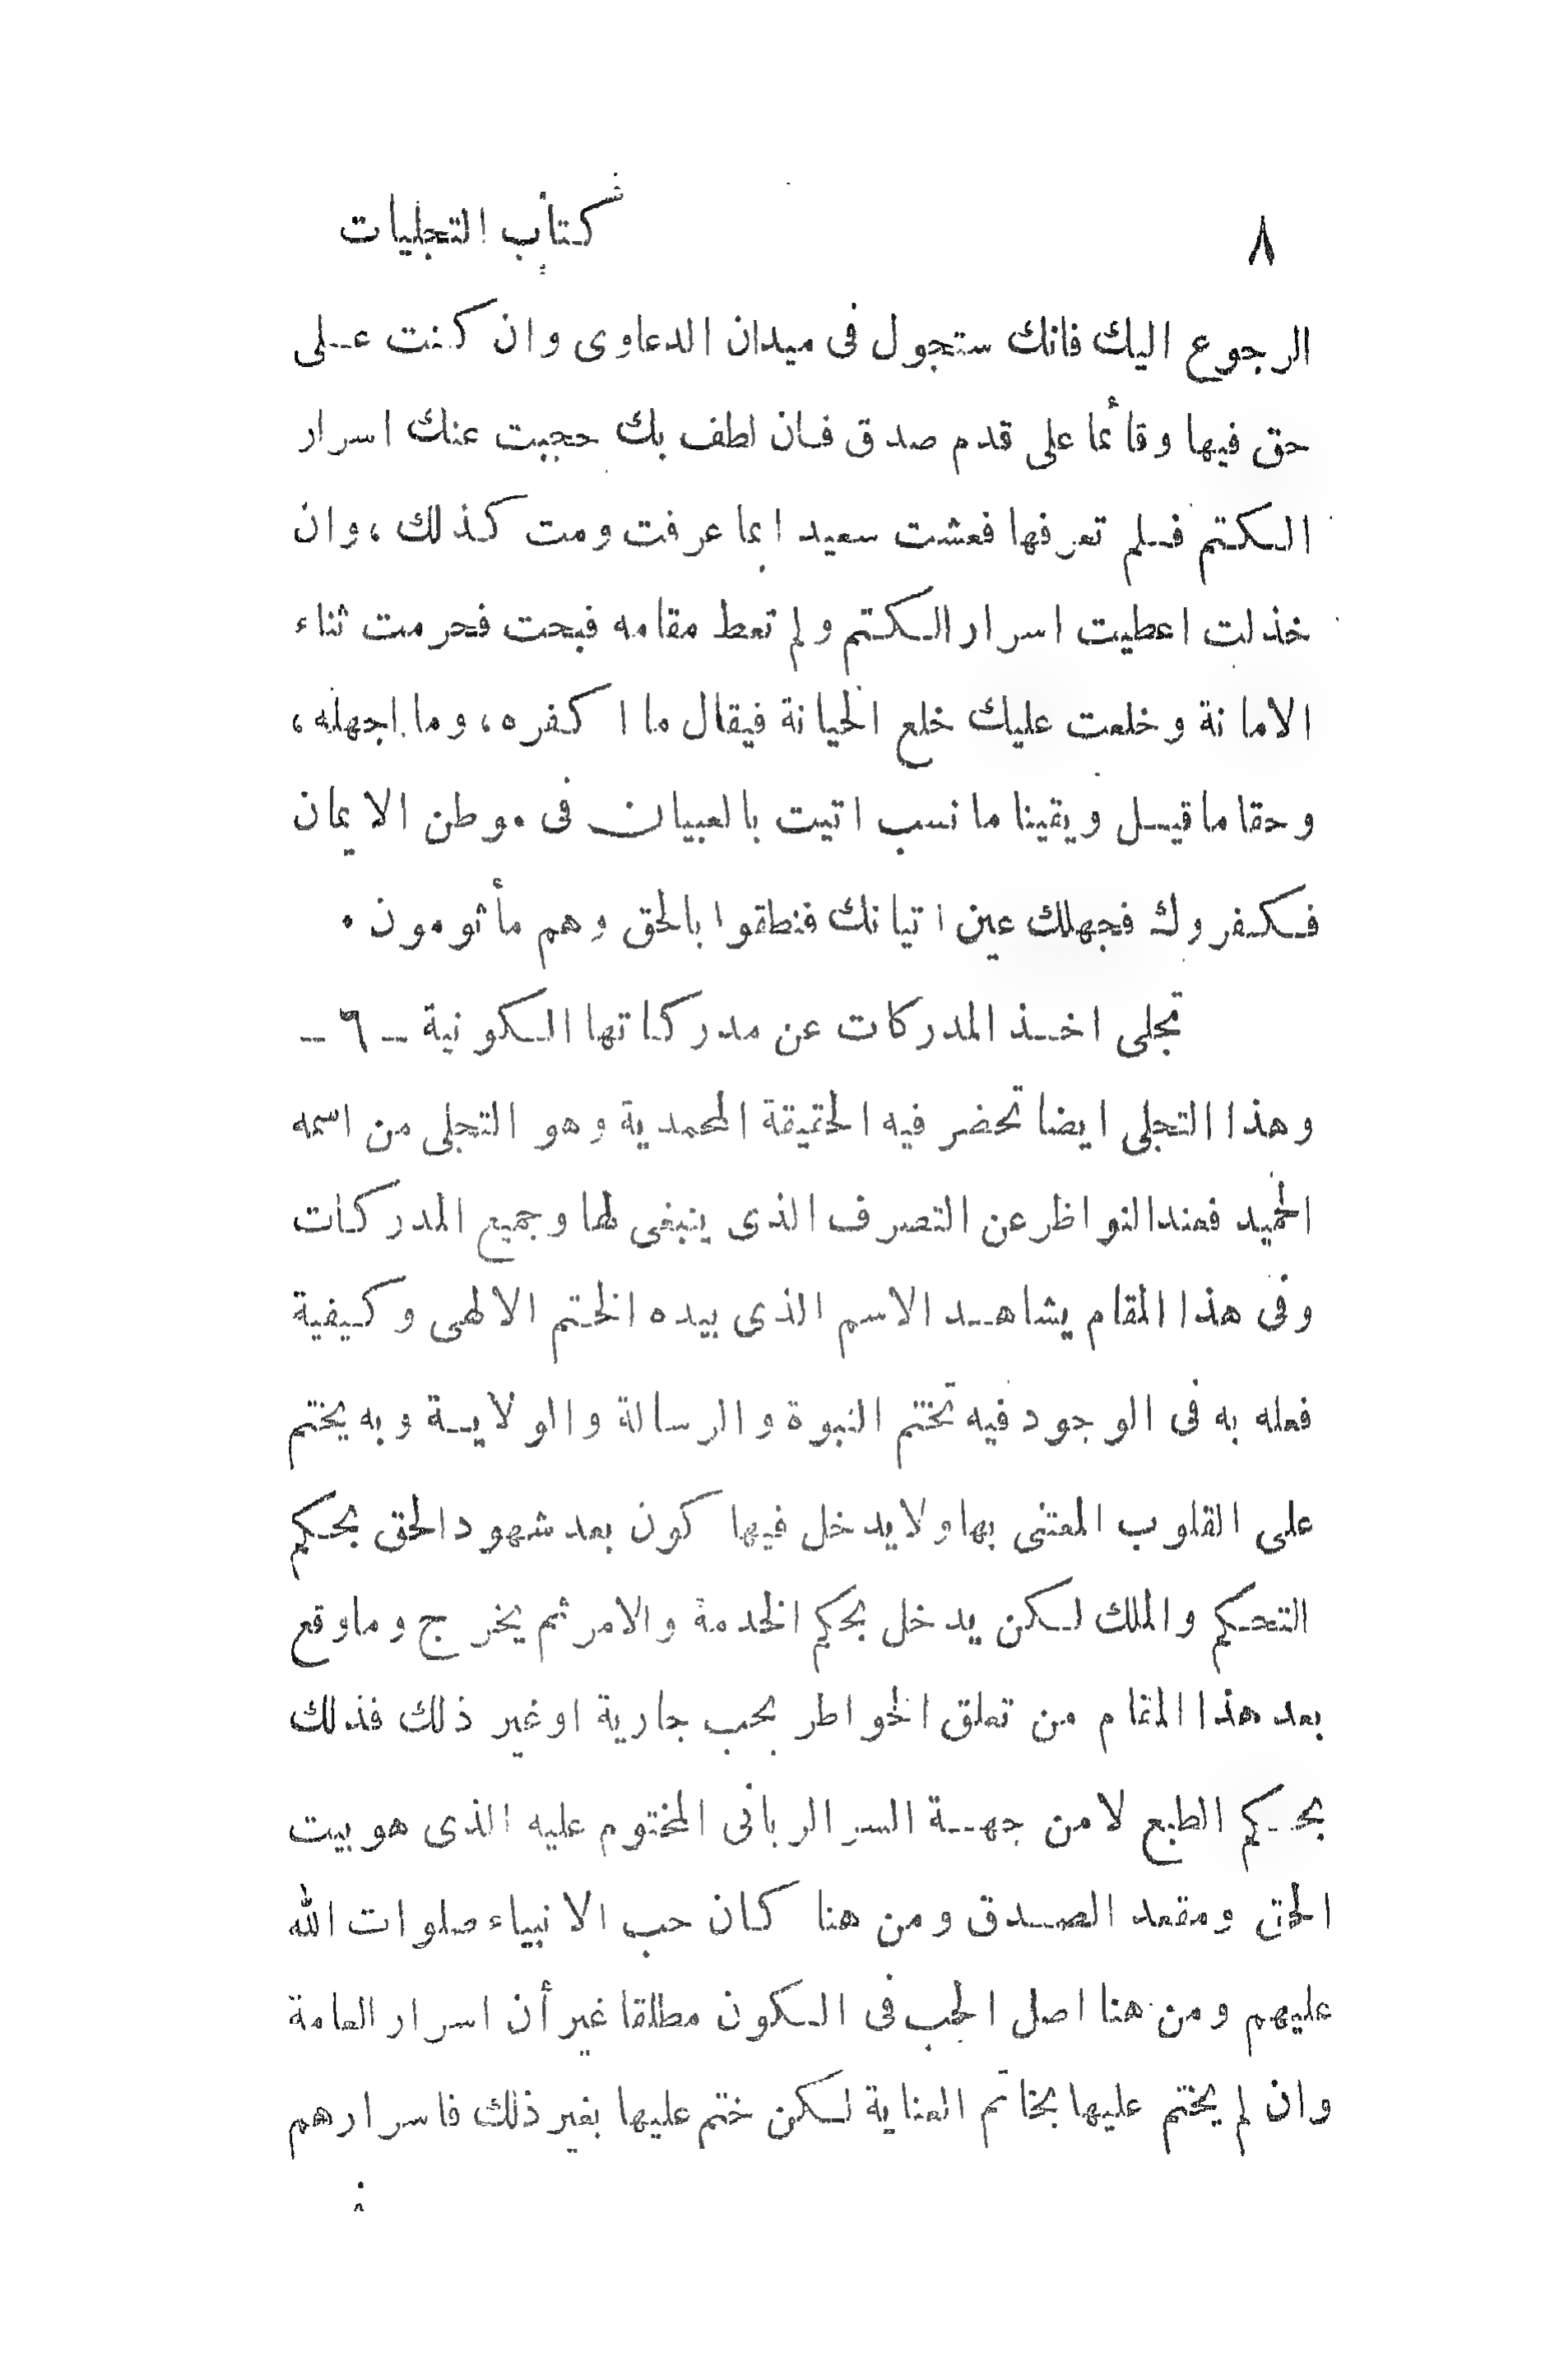 ٨ كتاب التجليات
الرجوع اليك فانك ستجول فى ميدان الدعاوى وان كنت على
حق فيها وقائما على قدم صدق فان لطف بك حجبت عنك اسرار
الكتم فلم تعرفها فعشت سعيدا بما عرفت ومت كذلك، وان
خذلت اعطيت اسرار الكتم ولم تعط مقامه فبحت فحرمت ثناء
الامانة وخلعت عليك خلع الخيانة فيقال ما اكفره، وما اجهله،
وحقا ما قيل ويقينا ما نسب اتيت بالعيان فى موطن الايمان
فكفروك فجهلك عين اتيانك فنطقوا بالحق وهم مأثومون .
تجلى اخذ المدركات عن مدركاتها الكونية - ٦ -
وهذا التجلى ايضا تحضر فيه الحقيقة المحمدية وهو التجلى من اسمه
الحميد فعند النواظر عن التصرف الذى ينبغى لها وجميع المدركات
وفى هذا المقام يشاهد الاسم الذى بيده الختم الالهى وكيفية
فعله به فى الوجود فيه تختم النبوة والرسالة والولاية وبه يختم
على القلوب المعتنى بها ولا يدخل فيها كون بعد شهود الحق بحكم
التحكم والملك لكن يدخل بحكم الخدمة والامر ثم يخرج وما وقع
بعد هذا المقام من تعلق الخواطر بحب جارية او غير ذلك فذلك
بحكم الطبع لا من جهة السر الربانى المختوم عليه الذى هو بيت
الحق ومقعد الصدق ومن هنا كان حب الانبياء صلوات الله
عليهم ومن هنا اصل الحب فى الكون مطلقا غير أن اسرار العامة
وان لم يختم عليها بخاتم العناية لكن ختم عليها بغير ذلك فاسرارهم